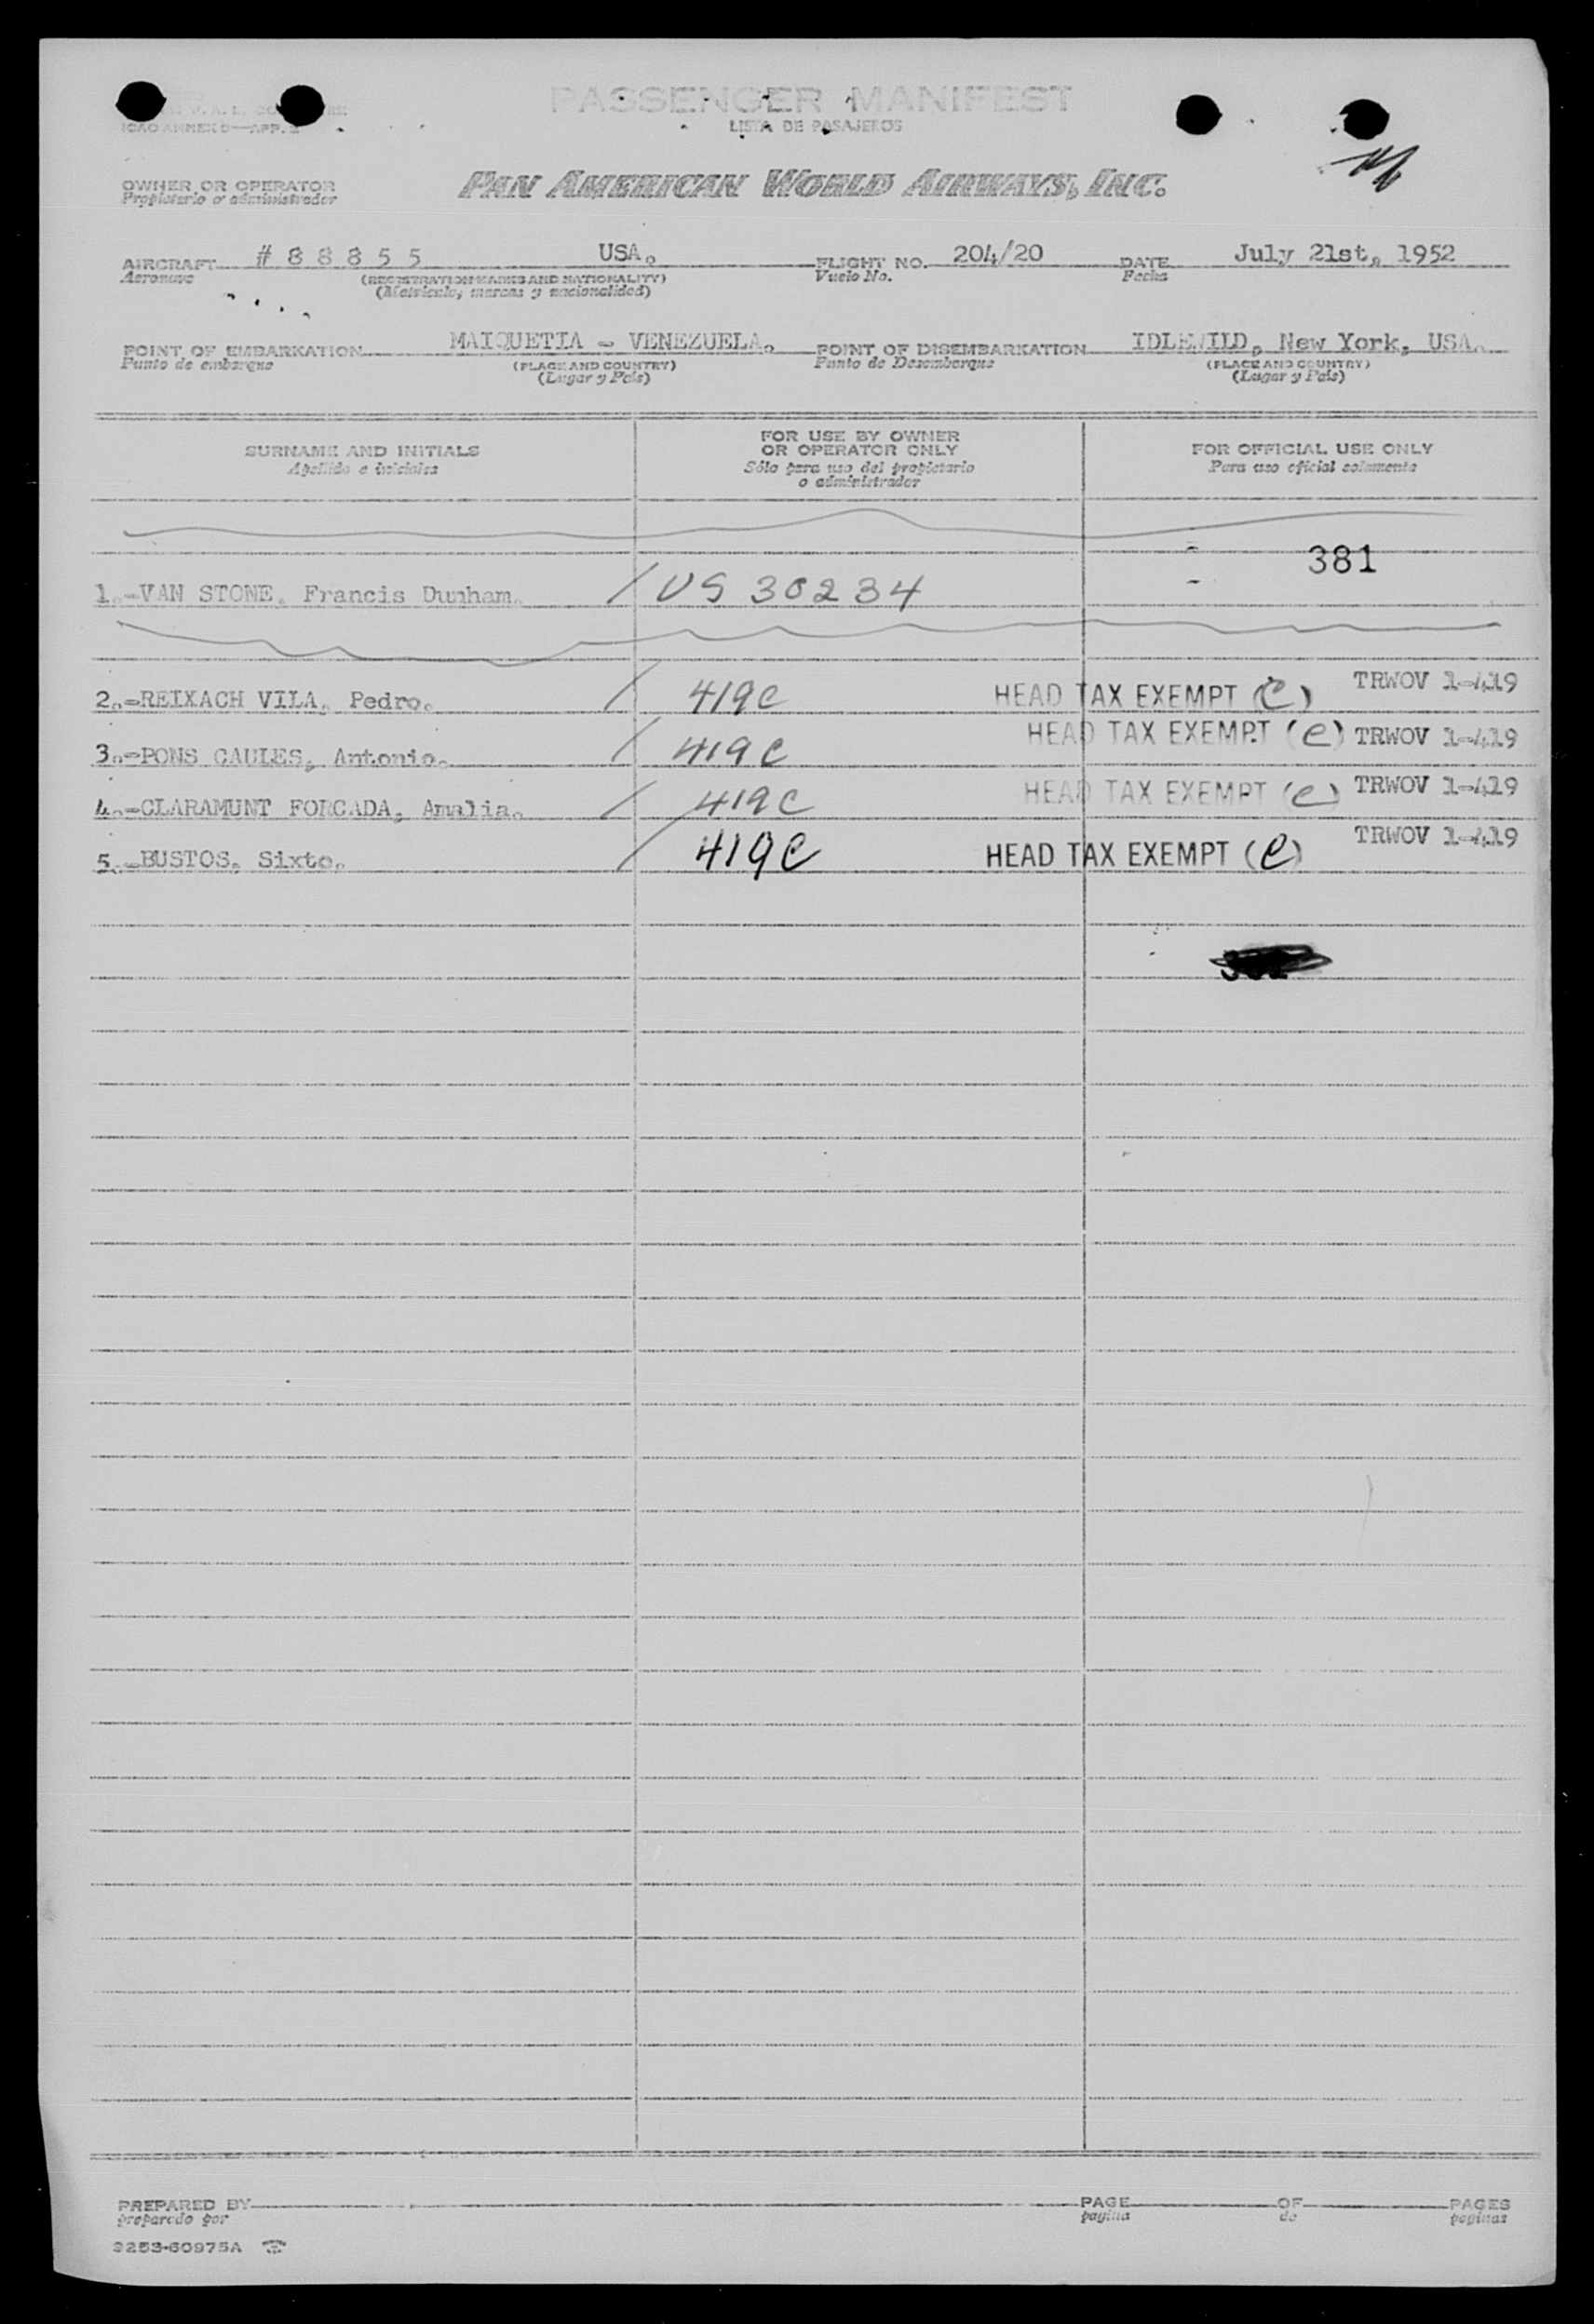 PASSENGER MANIFEST
LISTA DE PASAJEROS
ICAO ANNEX 9—APP. 2
OWNER OR OPERATOR
Propietario o administrador
PAN AMERICAN WORLD AIRWAYS, INC.
AIRCRAFT # 8 8 8 5 5 USA. FLIGHT NO. 204/20 DATE July 21st, 1952
Aeronave (REGISTRATION MARKS AND NATIONALITY) Vuelo No. Fecha
(Matricula, marcas y nacionalidad)
POINT OF EMBARKATION MAIQUETIA - VENEZUELA. POINT OF DISEMBARKATION IDLEWILD, New York, USA.
Punto de embarque (PLACE AND COUNTRY) Punto de Desembarque (PLACE AND COUNTRY)
(Lugar y País) (Lugar y País)
SURNAME AND INITIALS FOR USE BY OWNER OR OPERATOR ONLY FOR OFFICIAL USE ONLY
Apellido e iniciales Sólo para uso del propietario o administrador Para uso oficial solamente
381
1.-VAN STONE, Francis Dunham. / US 30234
2.-REIXACH VILA, Pedro. / 419C HEAD TAX EXEMPT (C) TRWOV 1-419
3.-PONS CAULES, Antonio. / 419C HEAD TAX EXEMPT (e) TRWOV 1-419
4.-CLARAMUNT FORCADA, Amalia. / 419C HEAD TAX EXEMPT (e) TRWOV 1-419
5.-BUSTOS, Sixto. / 419C HEAD TAX EXEMPT (e) TRWOV 1-419
PREPARED BY PAGE OF PAGES
preparado por pagina de paginas
9253-60975A